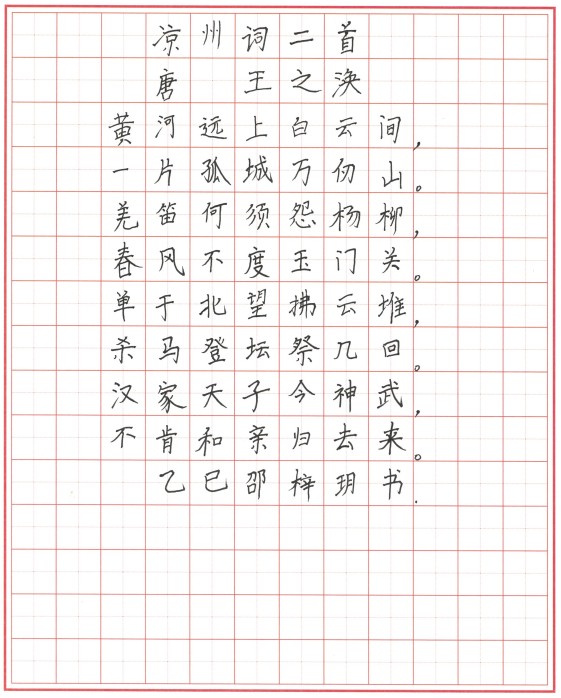 凉州词二首
唐 王之涣
黄河远上白云间，
一片孤城万仞山。
羌笛何须怨杨柳，
春风不度玉门关。
单于北望拂云堆，
杀马登坛祭几回。
汉家天子今神武，
不肯和亲归去来。
乙巳邵梓玥书.